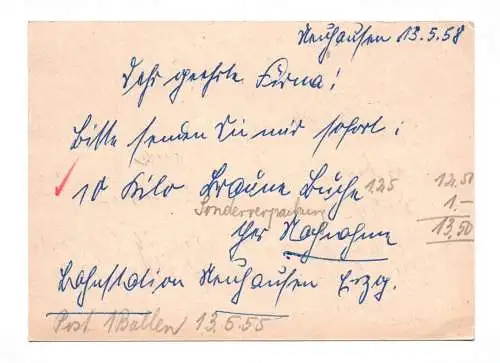 Neuhausen 13.5.58
Sehr geehrte Firma!
Bitte senden Sie mir sofort:
10 Kilo Braune Buche 125 12.50
Sonderverpackung 1.–
per Nachnahme 13,50
Bahnstation Neuhausen Erzg.
Post 1 Ballen 13.5.55